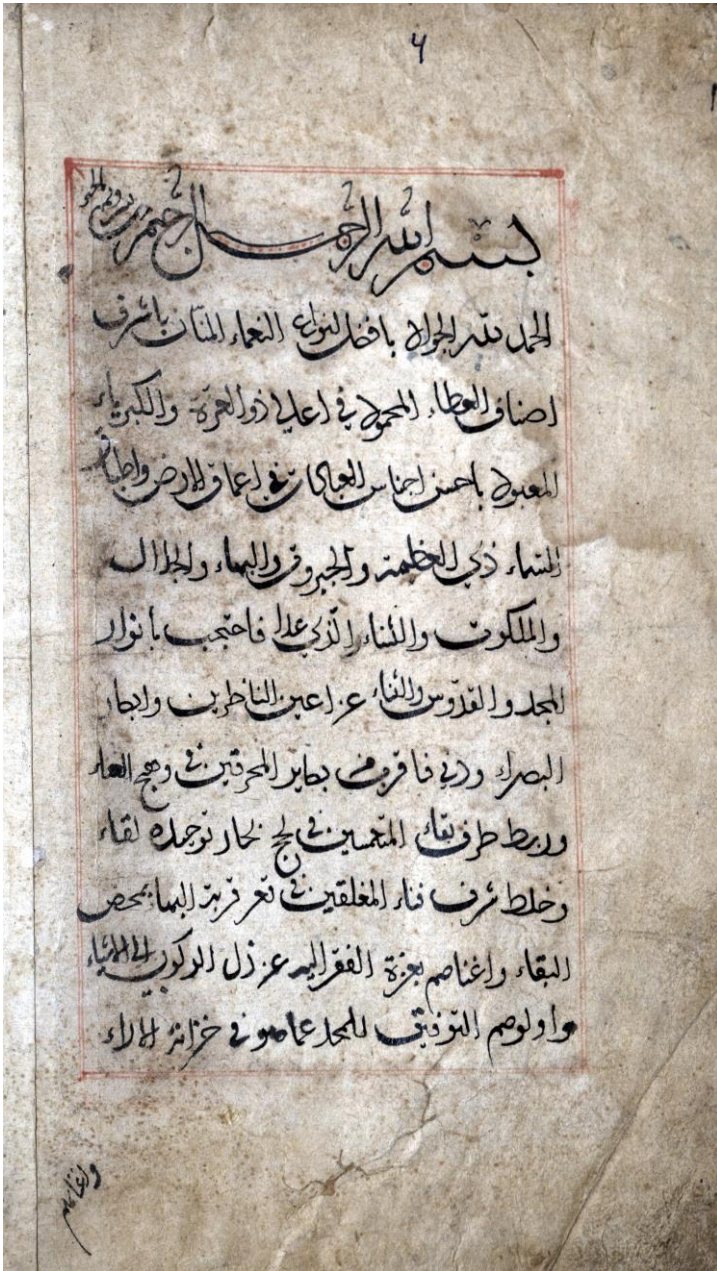 ٦
بسم الله الرحمن الرحيم
الحمد لله الجواد بافضل انواع النعماء المنان باشرف
اصناف العطاء المحمود في اعالي ذو العزة والكبرياء
المعبود باحسن اجناس العبادات في اعماق الارض واطباق
السماء ذي العظمة والجبروت والبهاء والجلال
والملكوت والثناء الذي علا فاحتجب بأنوار
المجد والقدوس والثناء عن اعين الناظرين وابصار
البصراء ودنى فاقرب من بصاير المحرقين في وهج العناء
وربط طرف بقاء المنغمسين في لجج بحار توحيده لقاء
وخلط شرف فناء المغلقين في قعر قربة البهاء بمحض
البقاء واغناهم بعزة الفقر اليه عن ذل الركون الى الاشياء
واولوهم التوفيق للمجد عما هو في خزائن الاراء